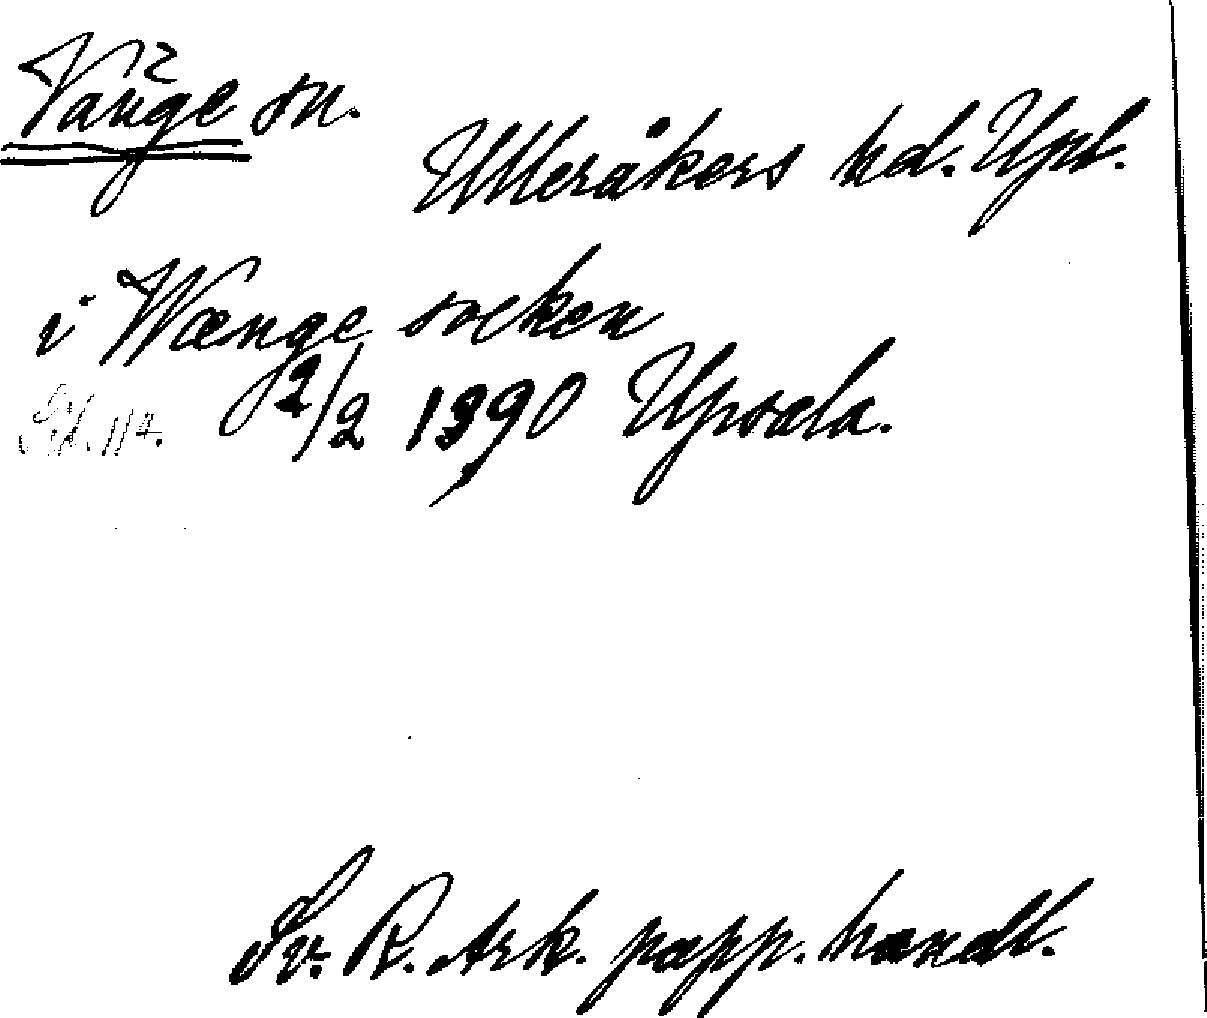 Vänge sn.
Ulleråkers hd. Upl.
i Wænge socken
2/2 1390 Upsala.
Sv. R. Ark. papp. handl.